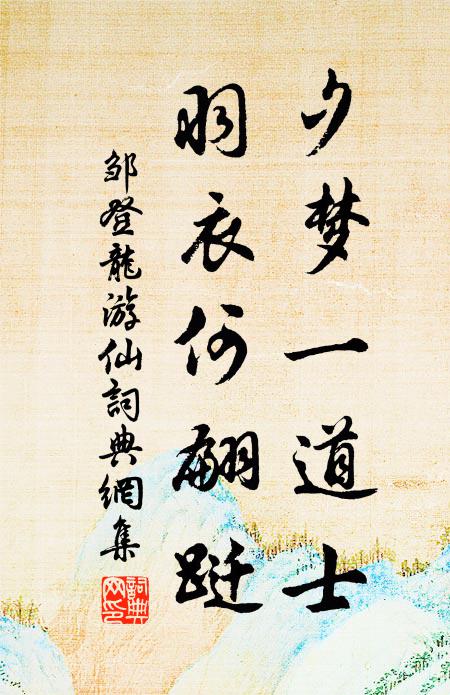 夕梦一道士
羽衣何翩跹
邹登龍游仙詞典網集
詞典网印